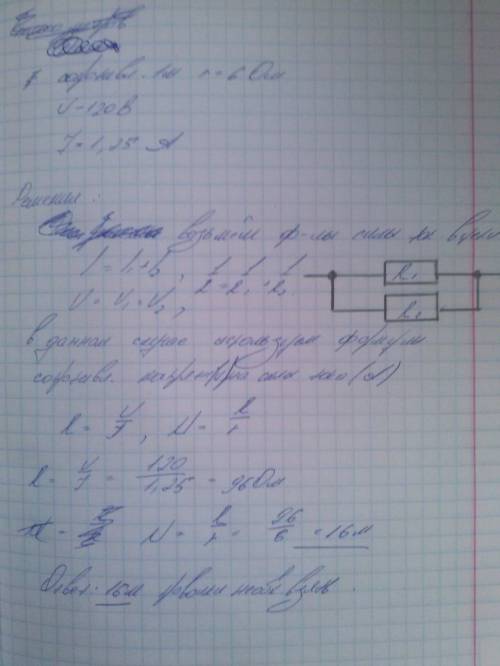 сопротивл. 1м r = 6 Ом
U = 120 В
I = 1,25 А
Решение:
возьмём ф-лы силы
I = I₁ + I₂, 1/R = 1/R₁ + 1/R₂
R₁
U = U₁ = U₂,
R₂
в данном случае используем формулу
сопротивл. тока (А)
R = U/I, N = R/r
R = U/I = 120/1,25 = 96 Ом
N = R/r = 96/6 = 16 м
Ответ: 16 м взять.